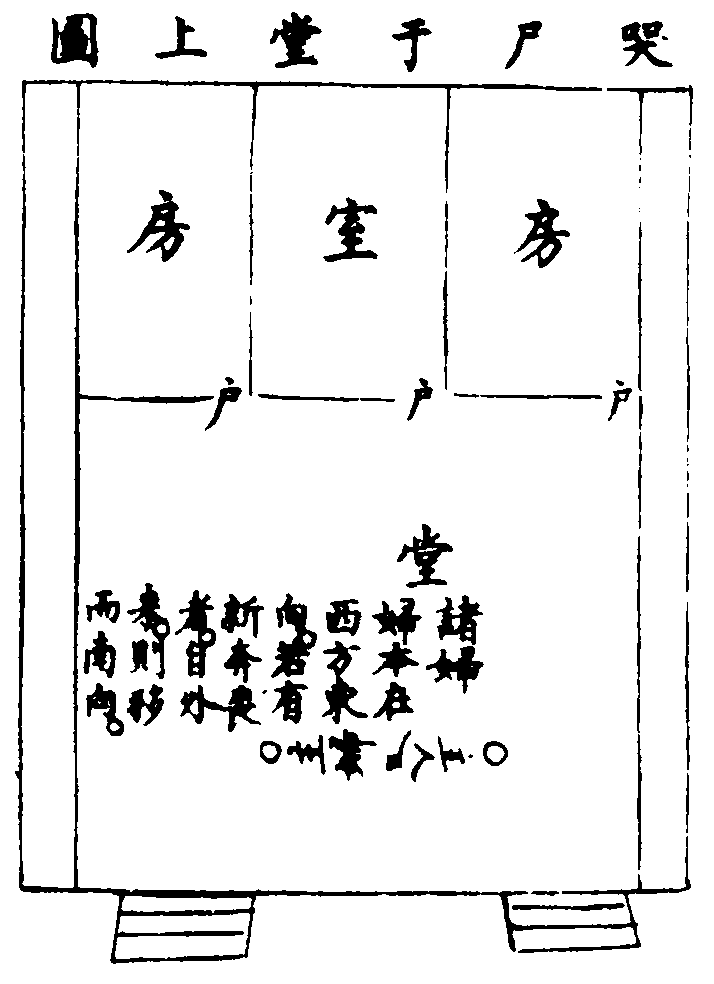 哭尸于堂上圖
房
室
房
户
户
户
堂
諸婦
婦本在
西方東
向若有
新奔喪
者自外
來則移
而南向
主人